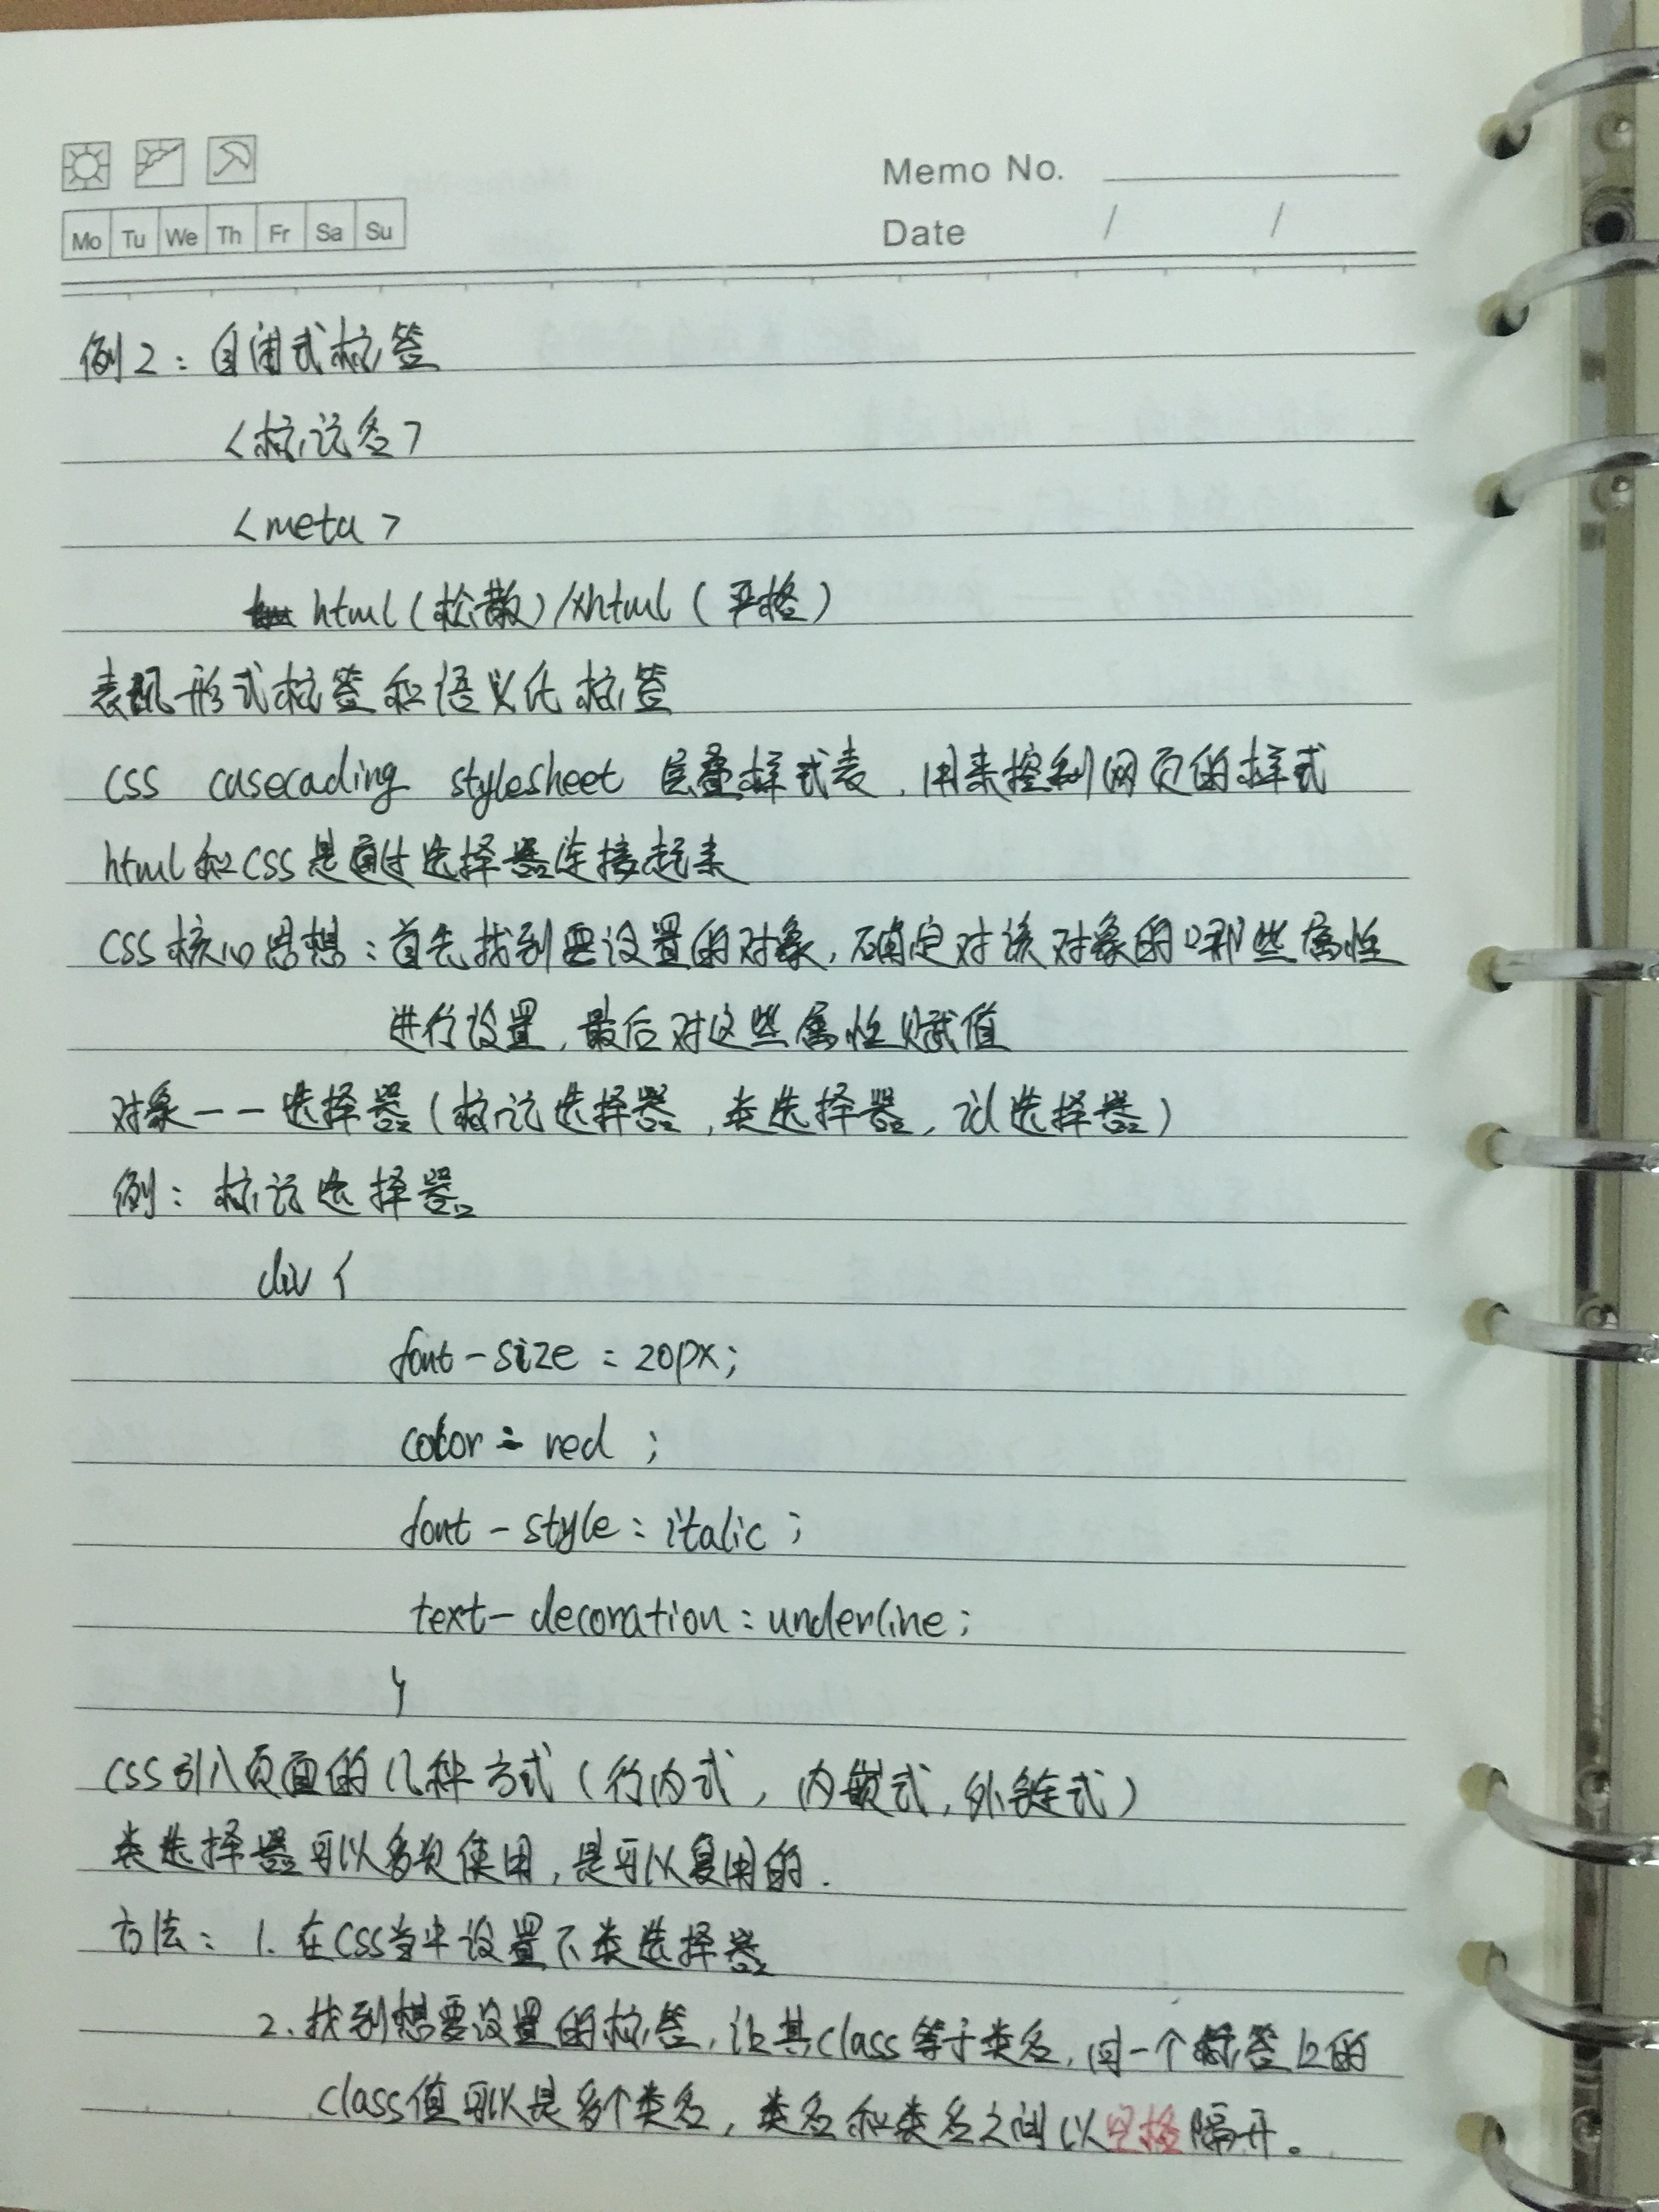 Memo No.
Mo Tu We Th Fr Sa Su
Date / /
例2：自闭式标签
<标记名>
<meta>
html(松散)/xhtml(严格)
表现形式标签和语义化标签
CSS casecading stylesheet 层叠样式表，用来控制网页的样式
html和CSS是通过选择器连接起来
CSS核心思想：首先找到要设置的对象，确定对该对象的哪些属性
进行设置，最后对这些属性赋值
对象——选择器(标记选择器，类选择器，id选择器)
例：标记选择器
div {
font-size : 20px;
color : red ;
font-style : italic ;
text-decoration : underline ;
}
CSS引入页面的几种方式(行内式，内嵌式，外链式)
类选择器可以多次使用，是可以复用的.
方法：1. 在CSS当中设置下类选择器
2. 找到想要设置的标签，让其class等于类名，同一个标签上的
class值可以是多个类名，类名和类名之间以空格隔开。